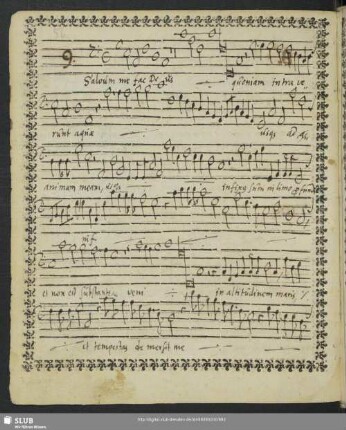 9.
Salvum me fac De us quoniam intrave
runt aquæ usqz ad An
animam meam, usqz Infixus sum in limo profun
di
et non est substantia veni in altitudinem maris
et tempestas de mersit me
SLUB
Wir führen Wissen.